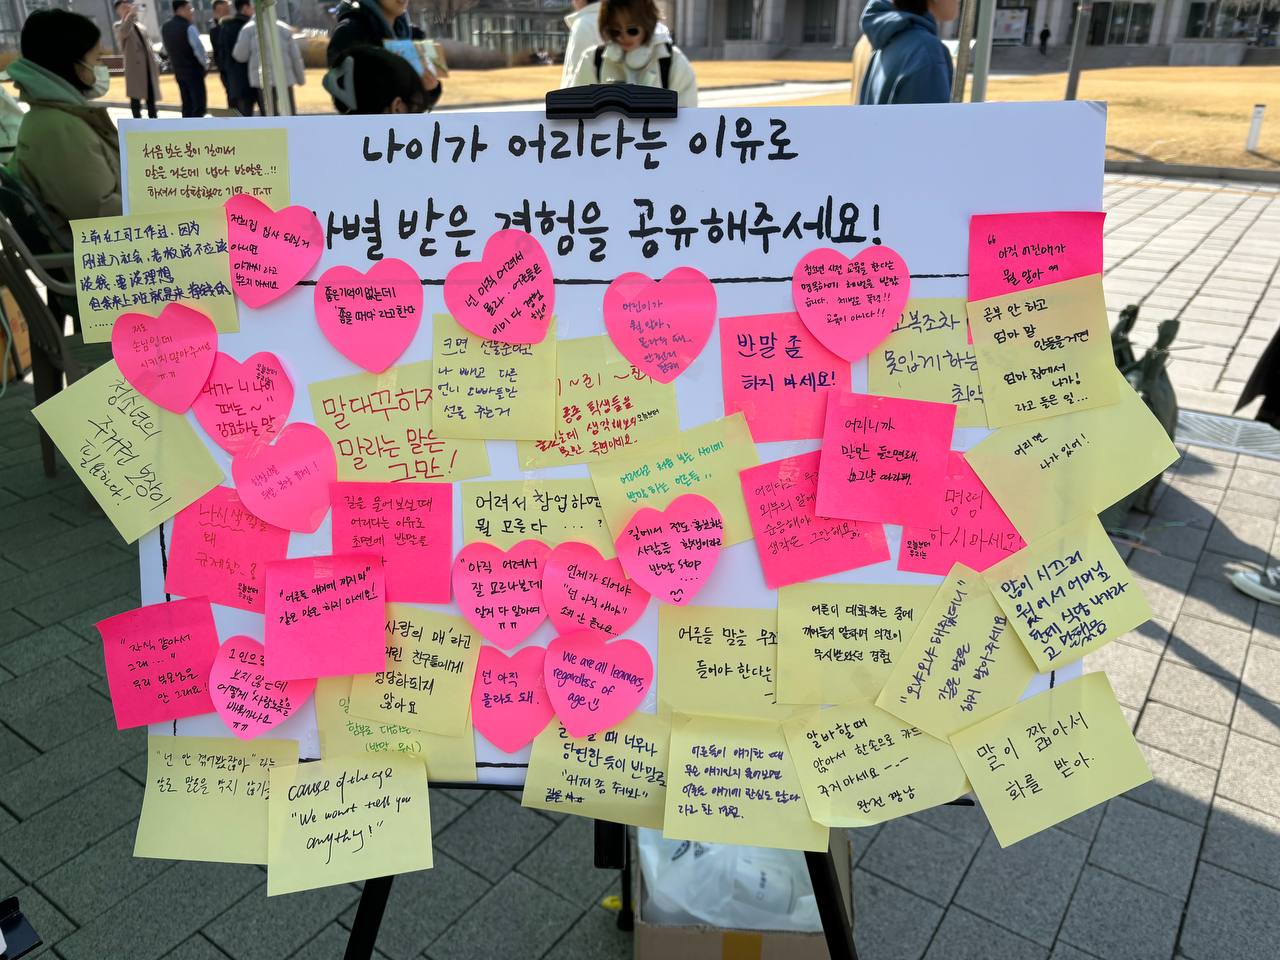 나이가 어리다는 이유로
차별 받은 경험을 공유해주세요!
처음 보는 분이 길에서
말을 거는데 냅다 반말을..!!
하셔서 당황했던 기억..ㅠㅠ
之前在工司工作过, 因为
刚进入社会, 老板说不应该
谈钱, 要谈理想
但我来上班就是来拿钱的
......
아니면
아가씨 라고
부르지 마세요
좋은기억이 없는데
'좋을 때다' 라고한다
넌 아직 어려서
몰라. 어른들은
이미 다 경험
했어
어린이가
뭘 알아,
청소년 시절 교육을 한다는
명목하에 체벌을 받았
습니다. 체벌은 폭력!!
교육이 아니다!!
"아직 어린애가
뭘 알아"
공부 안 하고
엄마 말
안들을거면
엄마 집에서
나가!
라고 들은 일...
손님인데
시키지 말아주세요
ㅠㅠ
내가 니 나이
때는~"
강요하는 말
청소년의
주거권 보장이
필요하다!
말대꾸하지
말라는 말은
그만!
크면 선물준다고
나 빼고 다른
언니 오빠들만
선물 주는거
반말 좀
하지 마세요!
교복조차
못입게 하는
최악
어리니까
말만 들으면돼.
그냥 따라와.
어리면
나가있어!
어리다고 처음 보는 사이에
반말하는 어른들..
길을 물어보실 때
어리다는 이유로
초면에 반말을
어려서 창업하면
뭘 모른다 ....?
길에서 전도, 홍보하는
사람들 학생이라고
반말 STOP
....
명령
하시마세요
"어른들 얘기에 끼지마"
같은 말은 하지 마세요!
"아직 어려서
잘 모르나본데"
알거 다 알아여
ㅠㅠ
언제가 되어야
"넌 아직 애야"
소리 안 듣나요...
많이 시드러
웠어서 어머님
한테 식당 나가라
고 말했음
"자식 같아서
그래..."
우리 부모님은
안 그래요!
1인으로
보지 않는데
어떻게 '사람노릇'을
배워가나요
ㅠㅠ
사랑의 매 라고
어린 친구들에게
정당화되지
않아요
넌 아직
몰라도 돼.
We are all learners,
regardless of
age
어른들 말을 무조건
들어야 한다는
어른이 대화하는 중에
끼어들지 말라며 의견이
무시받았던 경험
"오냐오냐 해줬더니"
같은 말은
하지 말아주세요
함부로 대하는
(반말, 무시)
"넌 안 겪어봤잖아" 라는
말로 말문을 막지 않기를
cause of the age
"We won't tell you
anything!"
때 너무나
당연한듯이 반말로
"커피 좀 줘봐"
어른들이 얘기할 때
무슨 얘기인지 물어보면
어른들 얘기에 관심도 많다
라고 한 경험.
알바할때
앉아서 한손으로 카드
주지마세요 -.-
완전 짱남
말이 짧아서
화를 받아.